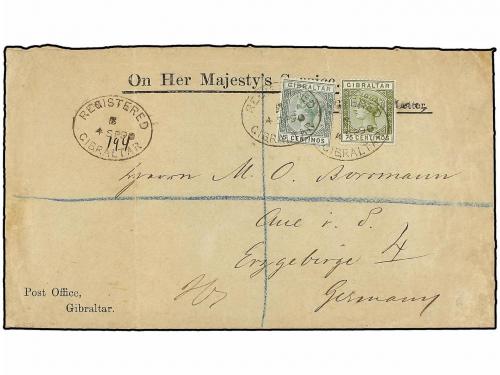 On Her Majesty's Service.
REGISTERED
4 SP 90
GIBRALTAR
199
REGISTERED
GIBRALTAR
GIBRALTAR
25 CENTIMOS
GIBRALTAR
75 CENTIMOS
GIBRALTAR
Herrn M. O. Borrmann
Aue i. S.
Erzgebirge 4
Germany
Post Office,
Gibraltar.